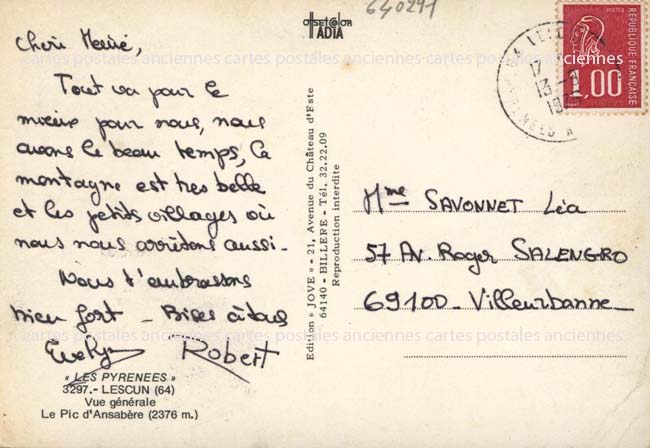 640291
offset color
IADIA
RÉPUBLIQUE FRANÇAISE
POSTES
1,00
17
13
19
PYRENEES A
cartes postales anciennes cartes postales anciennes cartes postales anciennes
Tout va pour le
mieux pour nous, nous
avons le beau temps, la
montagne est très belle
et les petits villages où
nous nous arrêtons aussi-
Nous t'embrassons
bien fort - Bises à tous
Evelyn Robert
cartes postales anciennes cartes postales anciennes cartes postales anciennes
« LES PYRENEES »
3297.- LESCUN (64)
Vue générale
Le Pic d'Ansabère (2376 m.)
Edition « JOVE » - 21, Avenue du Château d'Este
64140 - BILLERE - Tél. 32.22.09
Reproduction interdite
Mme SAVONNET Léa
57 Av. Roger SALENGRO
69100 - Villeurbanne